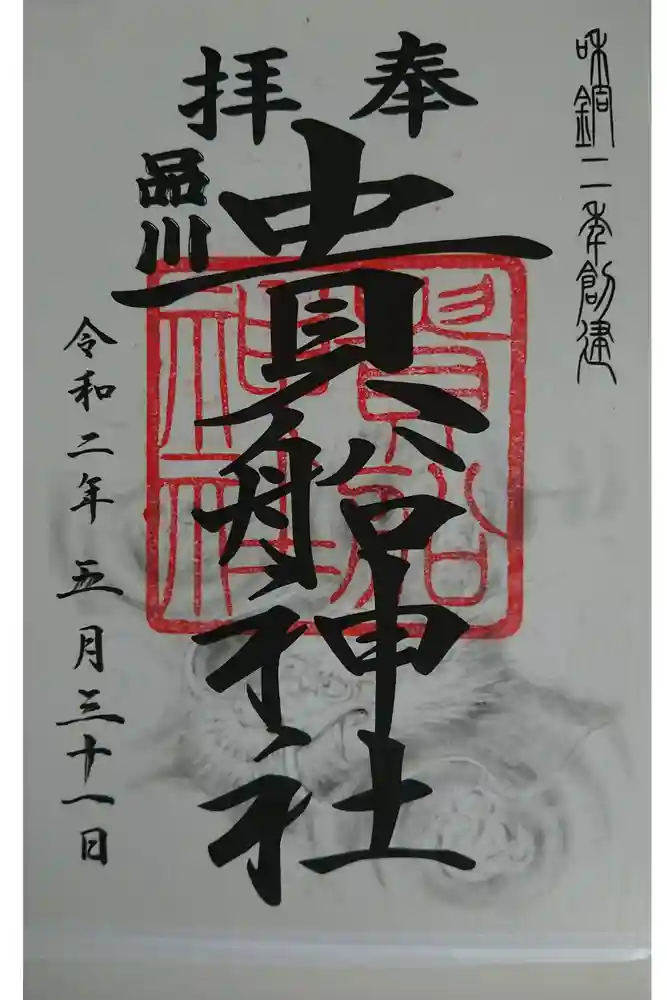 和銅二年創建
奉拝
品川
貴船神社
貴船神社
令和二年 五月三十一日